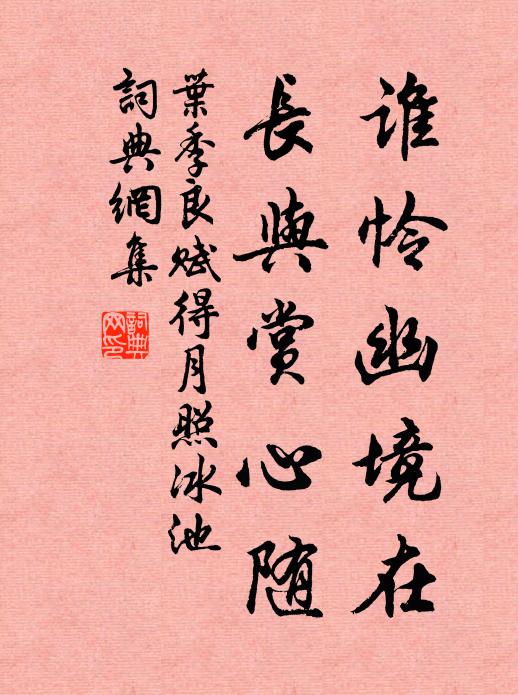 谁怜幽境在
長與赏心随
葉季良赋得月照冰池
詞典網集
詞典
网印